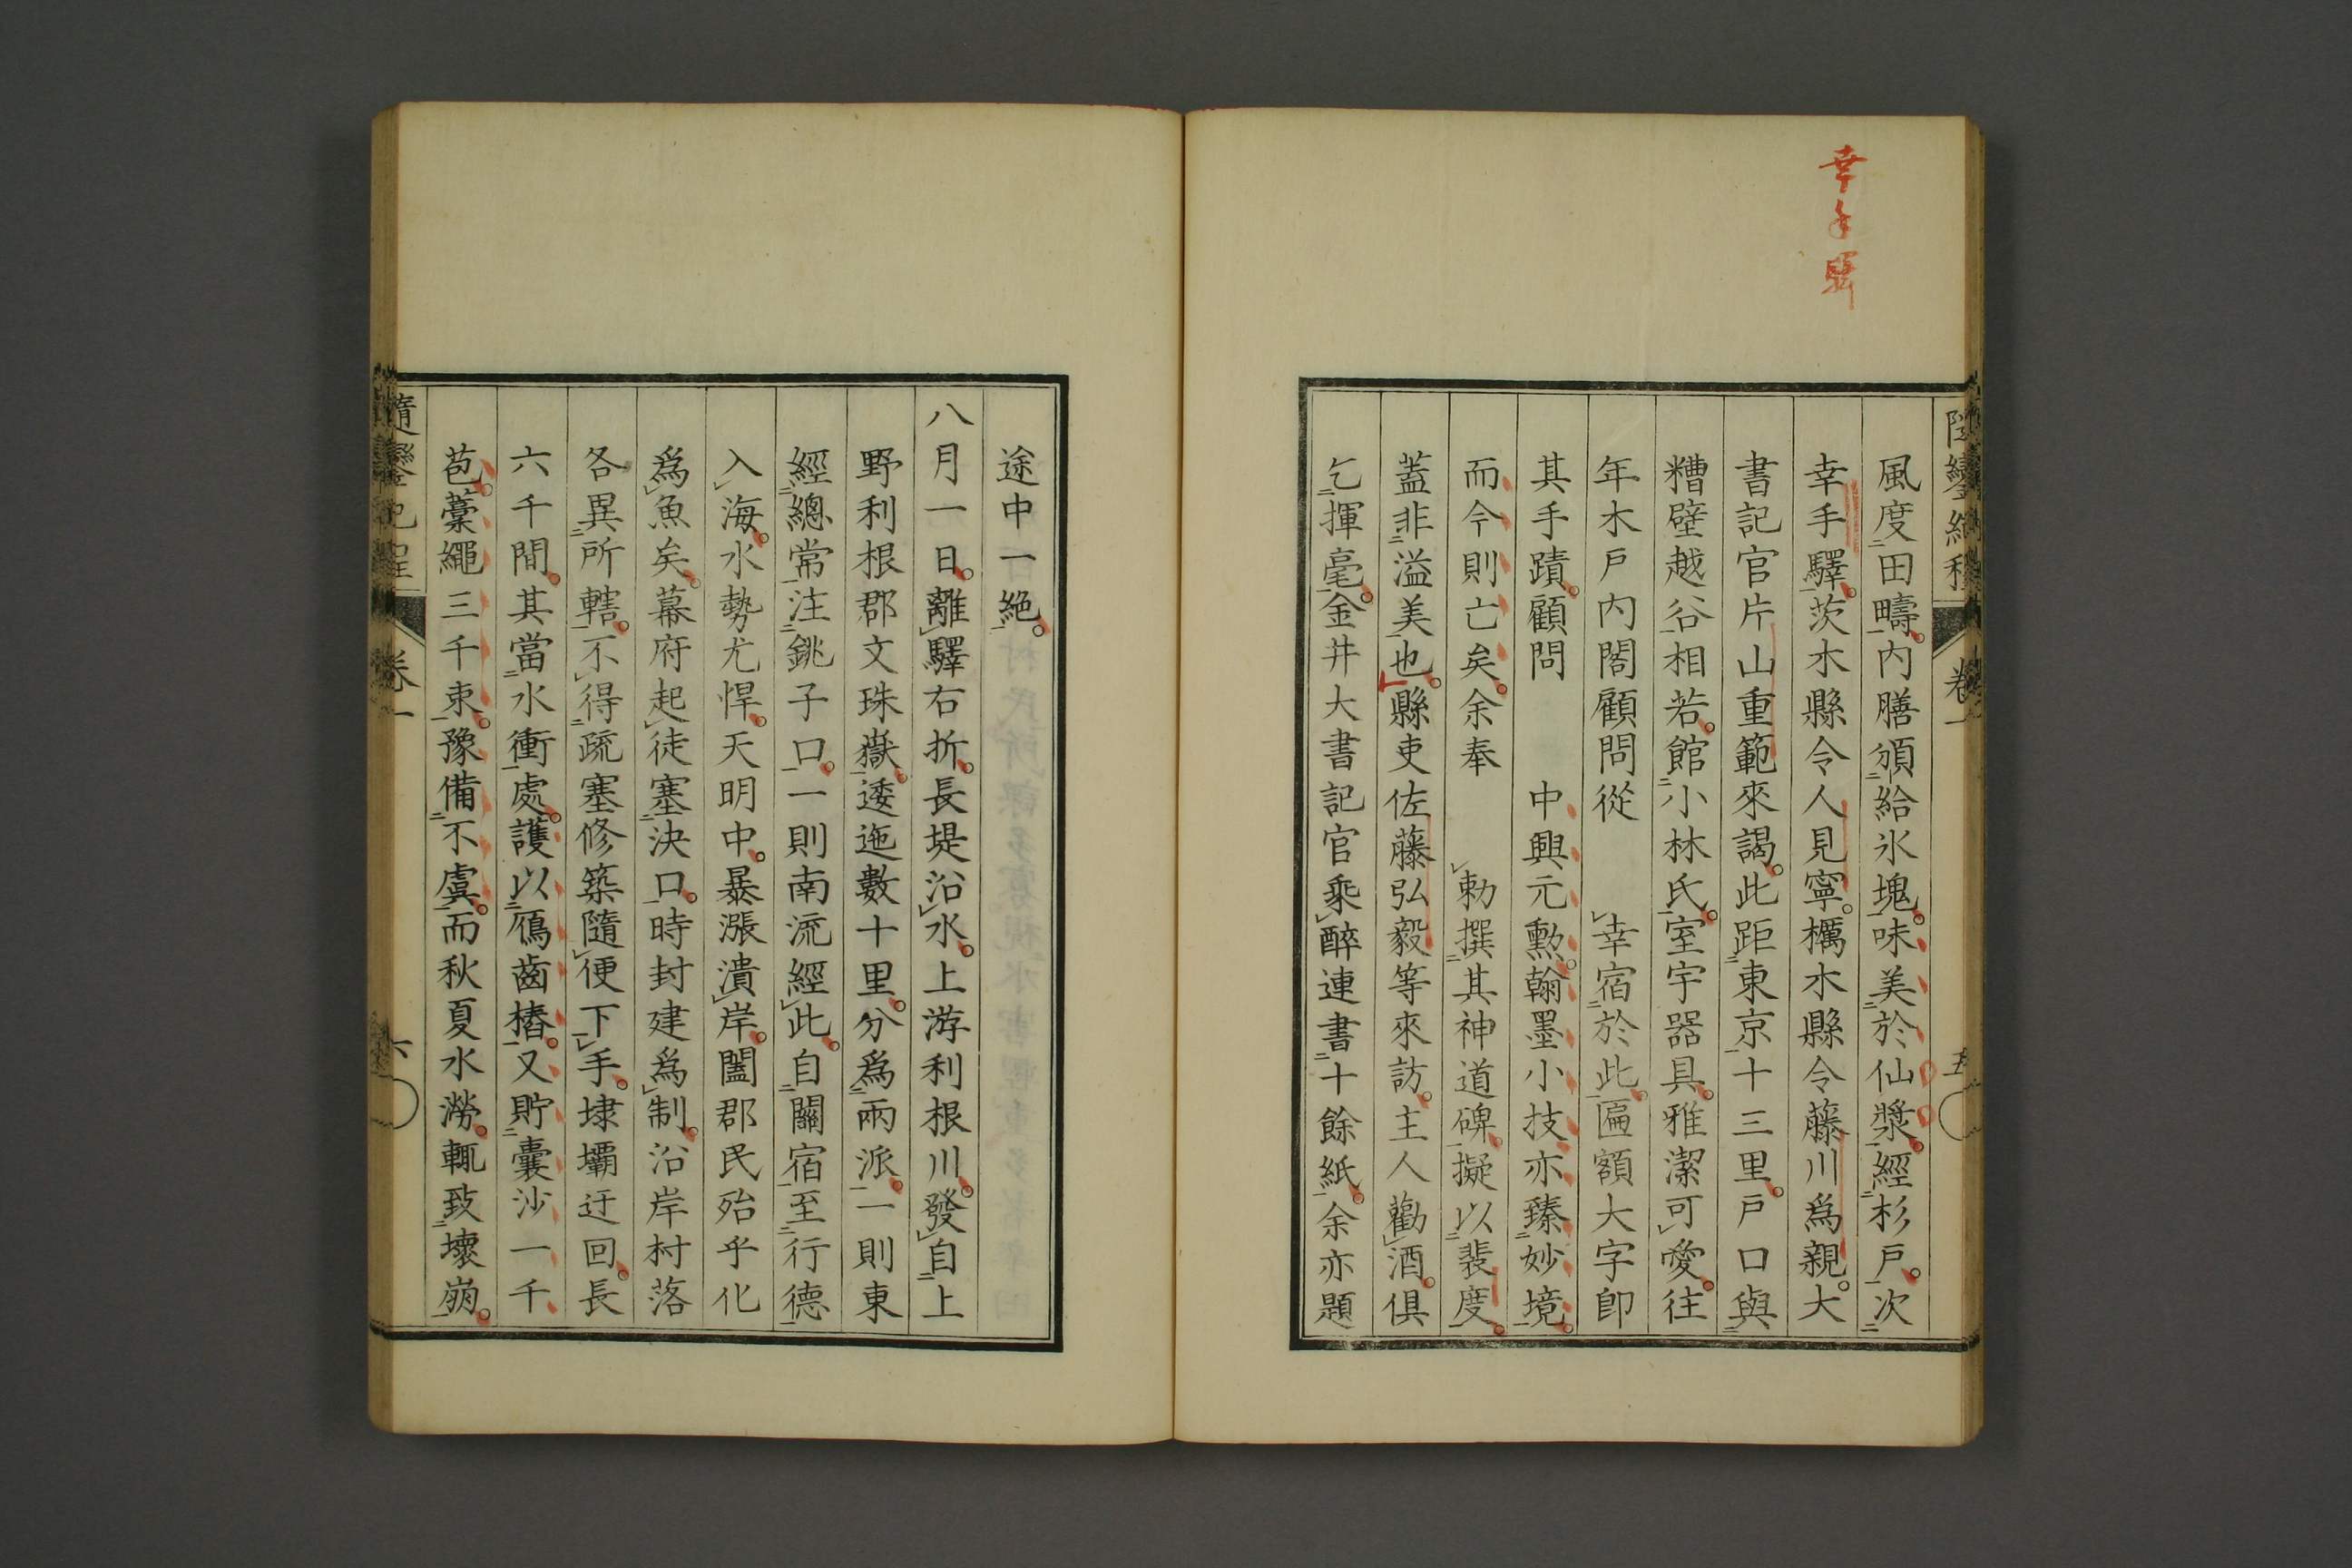 幸手驛
隨鑾紀程
卷一
五
風度田疇。内膳頒給氷塊。味美於仙漿。經杉戸。次
幸手驛。茨木縣令人見寧。橘木縣令藤川爲親。大
書記官片山重範來謁。此距東京十三里。戸口與
糟壁越谷相若。館小林氏。室宇器具。雅潔可愛。往
年木戸内閣顧問從 幸宿於此。匾額大字卽
其手蹟。顧問 中興元勲。翰墨小技。亦臻妙境。
而今則亡矣。余奉 勅撰其神道碑。擬以裴度。
蓋非溢美也。縣吏佐藤弘毅等來訪。主人勸酒。俱
乞揮毫。金井大書記官乘醉連書十餘紙。余亦題
途中一絶。
八月一日。離驛右折。長堤沿水。上游利根川。發自上
野利根郡文珠嶽。逶迤數十里。分爲兩派。一則東
經總常注銚子口。一則南流經此。自關宿至行德
入海。水勢尤悍。天明中。暴漲潰岸。闔郡民殆乎化
爲魚矣。幕府起徒塞決口。時封建爲制。沿岸村落
各異所轄。不得疏塞修築隨便下手。埭壩迂回。長
六千間。其當水衝處。護以鴈齒樁。又貯囊沙一千
苞。藁繩三千束。豫備不虞。而秋夏水澇。輒致壞崩。
隨鑾紀程
卷一
六